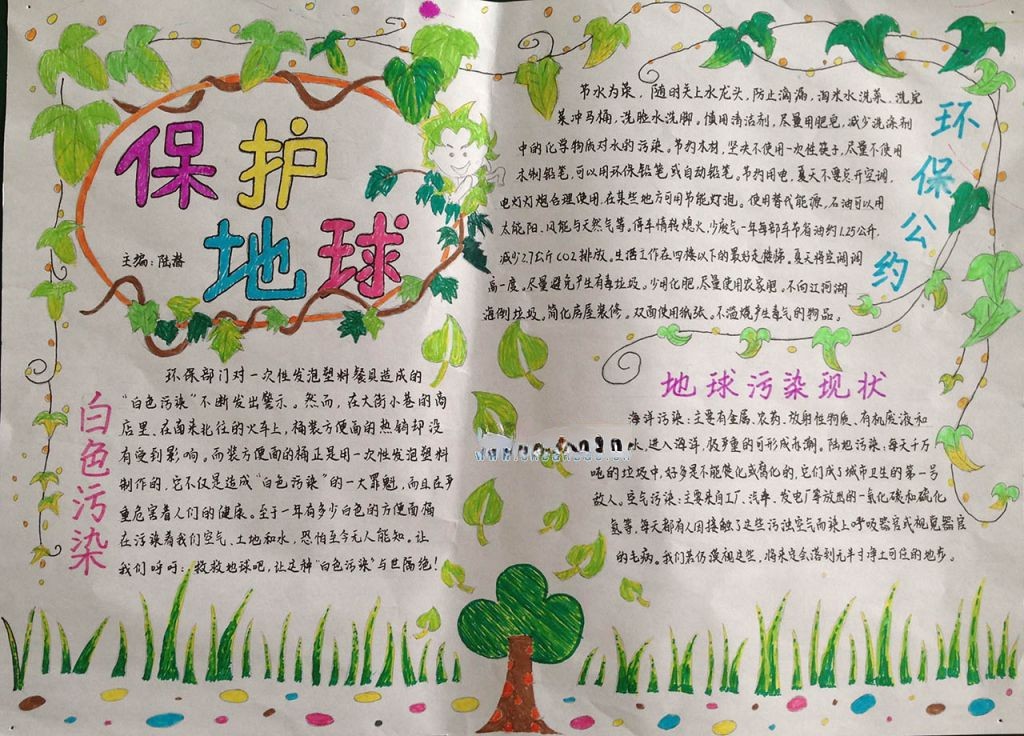 保护
地球
主编:陆潜
白色污染
环保部门对一次性发泡塑料餐具造成的
“白色污染”不断发出警示。然而,在大街小巷的商
店里,在南来北往的火车上,桶装方便面的热销却没
有受到影响。而装方便面的桶正是用一次性发泡塑料
制作的,它不仅是造成“白色污染”的一大罪魁,而且在严
重危害着人们的健康。至于一年有多少白色的方便面桶
在污染着我们空气、土地和水,恐怕至今无人能知。让
我们呼吁:救救地球吧,让这种“白色污染”与世隔绝!
环保公约
节水为荣,随时关上水龙头,防止滴漏,淘米水洗菜,洗完
菜冲马桶,洗脸水洗脚。慎用清洁剂,尽量用肥皂,减少洗涤剂
中的化学物质对水的污染。节约木材,坚决不使用一次性筷子,尽量不使用
木制铅笔,可以用环保铅笔或自动铅笔。节约用电,夏天不要总开空调,
电灯灯炮合理使用,在某些地方可用节能灯泡。使用替代能源,石油可以用
太能阳、风能与天然气等。停车请转熄火,少废气一年每部车节省油约1.25公斤,
减少2.7公斤CO2排放。生活工作在四楼以下的最好走楼梯。夏天将空调调
高一度。尽量避免产生有毒垃圾。少用化肥,尽量使用农家肥,不向江河湖
海倒垃圾。简化房屋装修。双面使用纸张。不滥烧产生毒气的物品。
地球污染现状
海洋污染:主要有金属、农药、放射性物质、有机废液和
水,进入海洋,极严重的可形成赤潮。陆地污染:每天千万
吨的垃圾中,好多是不能焚化或腐化的,它们成了城市卫生的第一号
敌人。空气污染:主要来自工厂、汽车、发电厂等放然的一氧化碳和硫化
氢等,每天都有人因接触了这些污浊空气而染上呼吸器官或视觉器官
的毛病。我们若仍漠视这些,将来定会落到无半寸净土可住的地步。